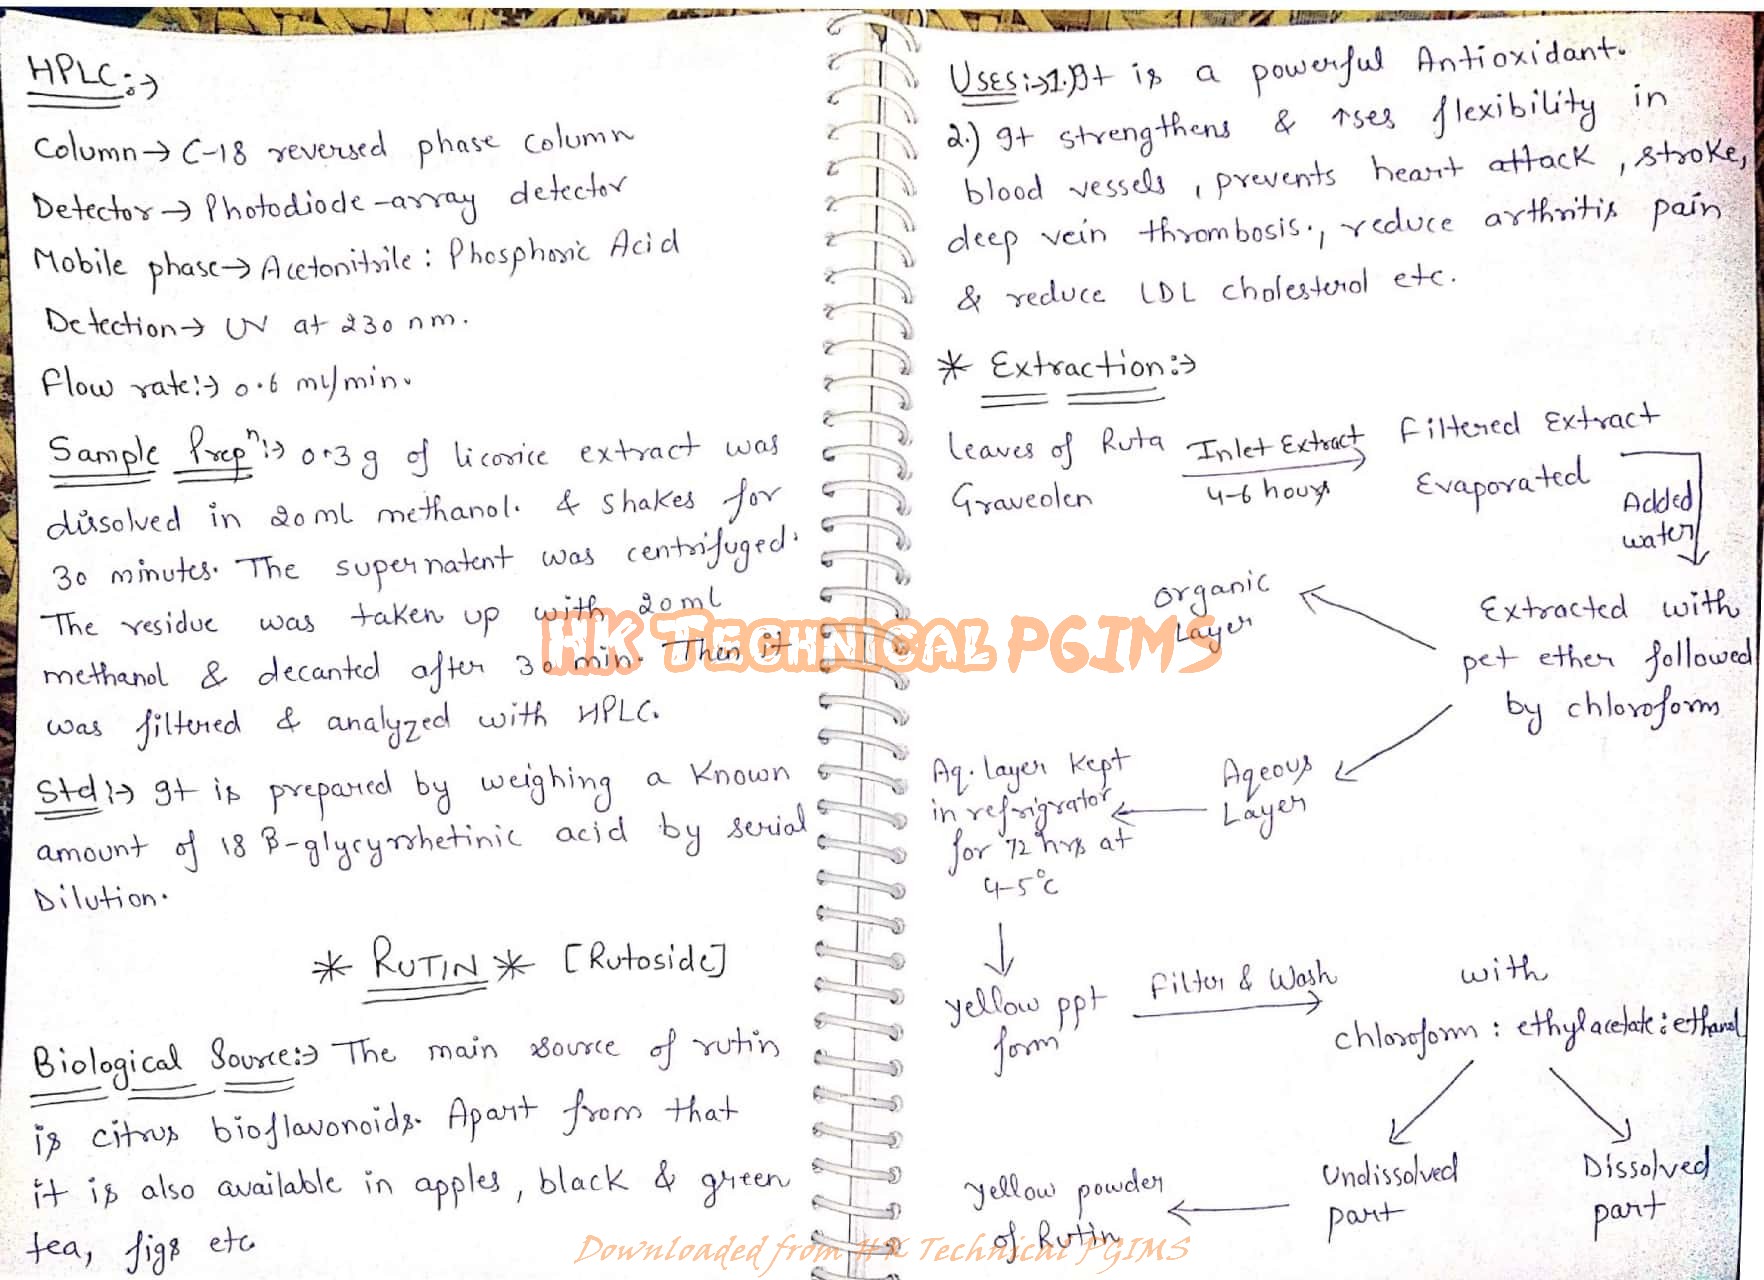 HPLC:→
Column→ C-18 reversed phase column
Detector→ Photodiode-array detector
Mobile phase→ Acetonitrile : Phosphoric Acid
Detection→ UV at 230 nm.
Flow rate:→ 0.6 ml/min.
Sample Prepⁿ:→ 0.3 g of licorice extract was
dissolved in 20 ml methanol. & shakes for
30 minutes. The supernatent was centrifuged.
The residue was taken up with 20 ml
methanol & decanted after 30 min. Then it
was filtered & analyzed with HPLC.
Std:→ It is prepared by weighing a known
amount of 18 β-glycyrrhetinic acid by serial
Dilution.
* RUTIN * [Rutoside]
Biological Source:→ The main source of rutin
is citrus bioflavonoids. Apart from that
it is also available in apples, black & green
tea, figs etc
USES:→1.) It is a powerful Antioxidant.
2.) It strengthens & ↑ses flexibility in
blood vessels, prevents heart attack, stroke,
deep vein thrombosis., reduce arthritis pain
& reduce LDL cholesterol etc.
* Extraction:→
leaves of Ruta
Graveolen
Inlet Extract
4-6 hours
Filtered Extract
Evaporated
Added
water
Extracted with
pet ether followed
by chloroform
Organic
Layer
Aqeous
Layer
Aq. layer kept
in refrigrator
for 72 hrs at
4-5°C
yellow ppt
form
Filter & Wash
with
chloroform : ethylacetate : ethanol
Undissolved
part
Dissolved
part
yellow powder
of Rutin
HK TECHNICAL PGIMS
Downloaded from HK Technical PGIMS